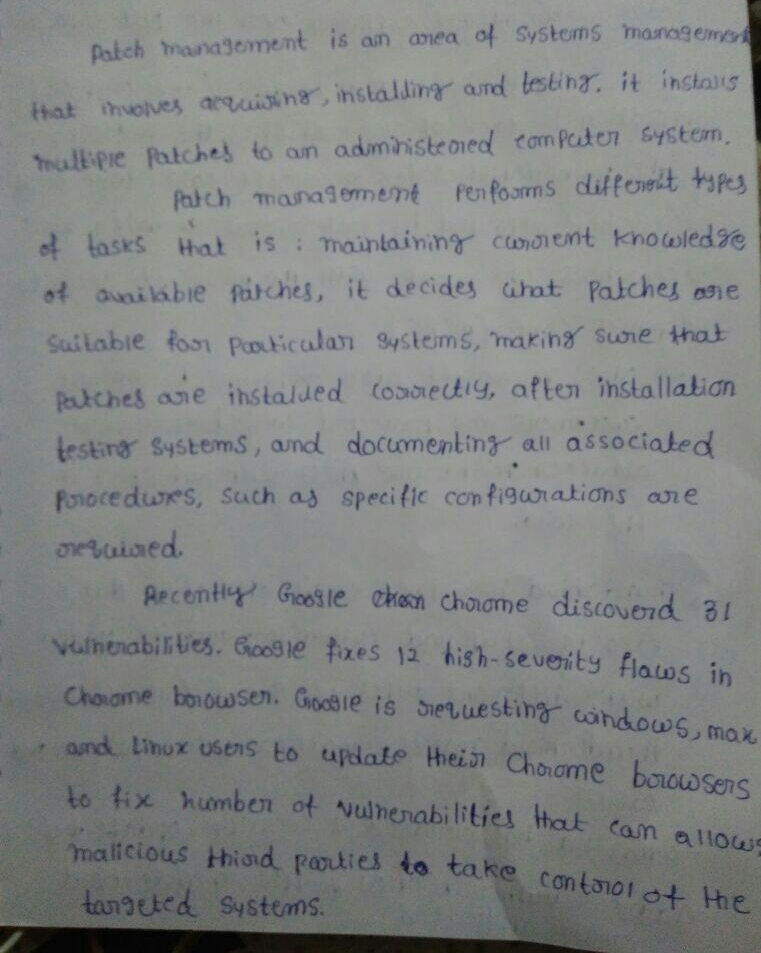 Patch management is an area of systems management
that involves acquiring, installing and testing. it installs
multiple patches to an administered computer system.
Patch management performs different types
of tasks that is : maintaining current knowledge
of available patches, it decides what patches are
suitable for particular systems, making sure that
patches are installed correctly, after installation
testing systems, and documenting all associated
procedures, such as specific configurations are
required.
Recently Google chrom chrome discoverd 31
vulnerabilities. Google fixes 12 high-severity flaws in
Chrome browser. Google is requesting windows, max
and Linux users to update their Chrome browsers
to fix number of vulnerabilities that can allows
malicious third parties to take control of the
targeted systems.